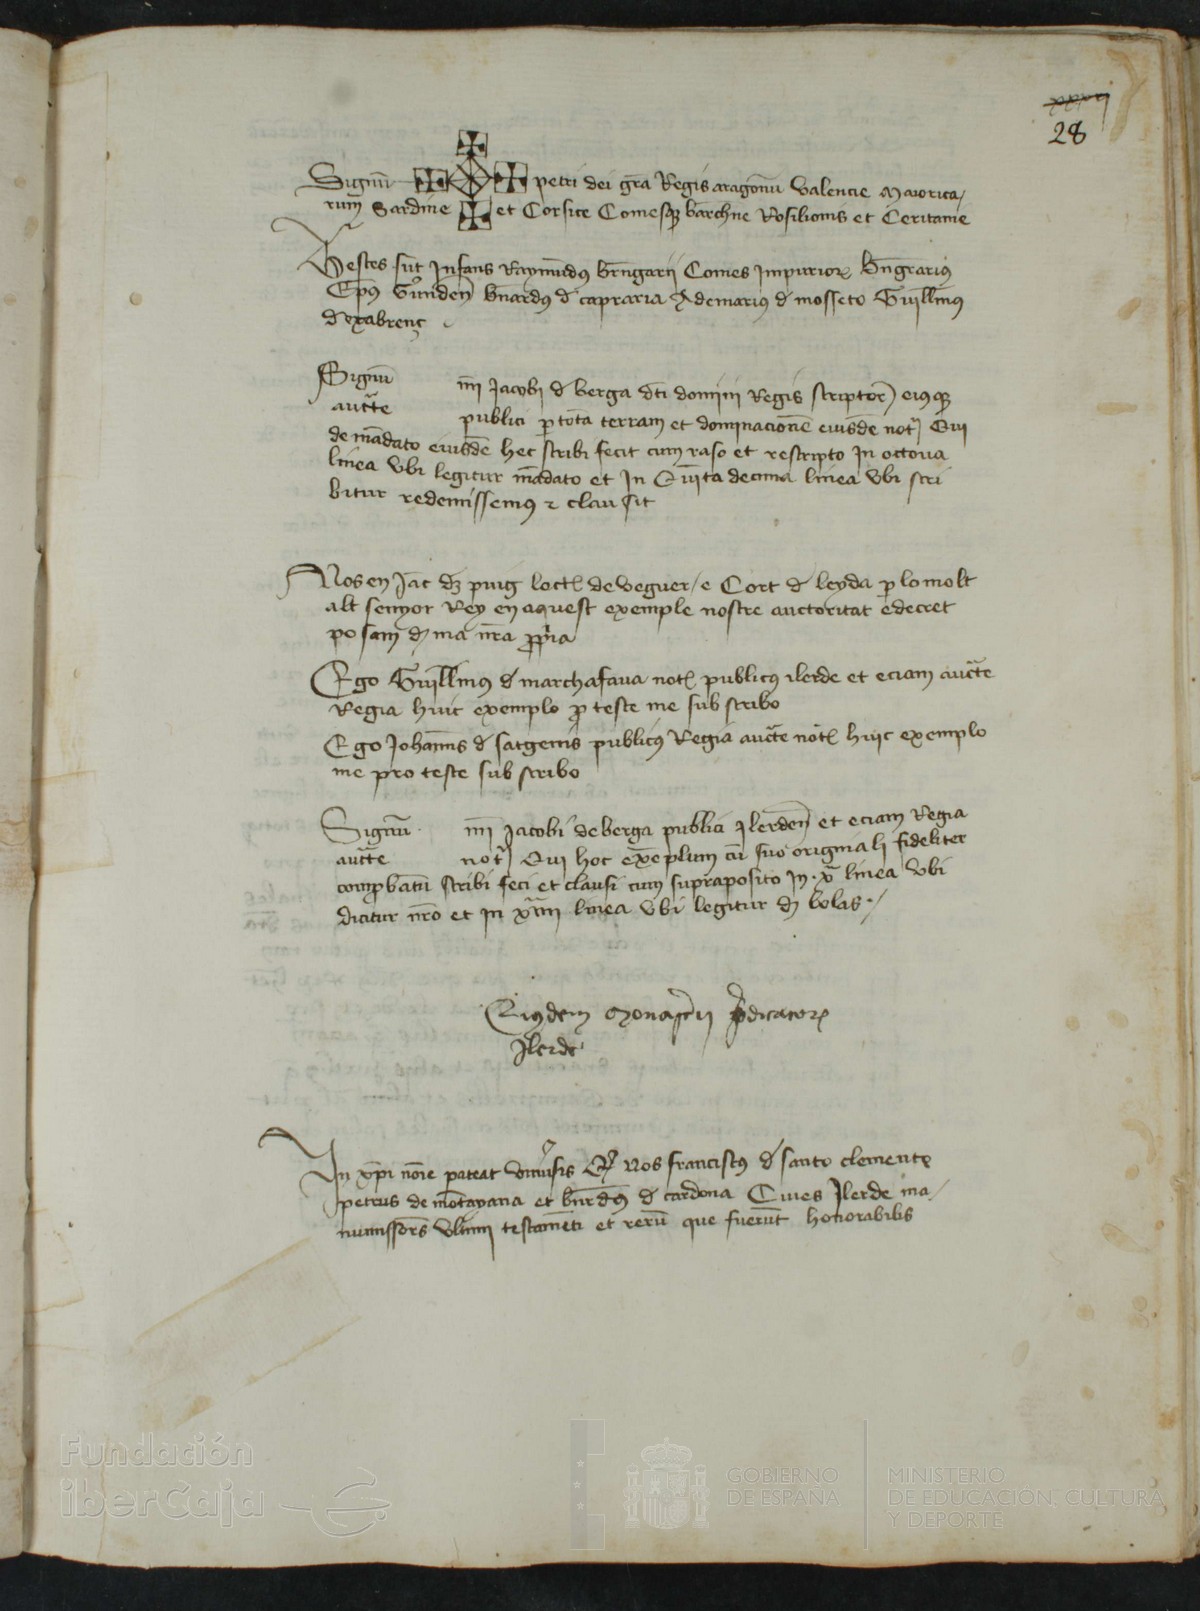 xxxvj
28
Signū petri dei gr̄a Regis aragonū Valencie Maiorica/
rum Sardinie et Corsice Comesqꝫ barchn̄e Rosilionis et Ceritanie
Testes sūt Infans Raymūdꝰ br̄ngarij Comes Impurioꝝ br̄ngrariꝰ
Ep̄s Gūnden̄ bn̄ardꝰ d' capraria Ademariꝰ d' mosseto Guill̄mꝰ
d'
Signū m̄ Jacobi d' berga d̄ti domini Regis scriptor̄ eiꝰqꝫ
auct̄te publici ꝑ totā terram et dominacionē eiusdē not̄ Qui
de mādato eiusdē hec scribi fecit cum raso et rescripto In octoua
linea Vbi legitur mādato et In Quīta decima linea Vbi scri
bitur redemissemꝰ ⁊ clausit
Nos en Jac̄ dꝫ puig loct̄ de veguer/e Cort d' leyda ꝑ lo molt
alt senyor Rey en aquest exemple nostre auctoritat e decret
posam d' ma nr̄a ꝓpia
Ego Guill̄mꝰ d' marchafaua not̄ publicꝰ ilerde et eciam auct̄te
Regia huic exemplo ꝓ teste me subscribo
Ego Johann̄s d' satgenis publicꝰ Regia auct̄te not̄ huic exemplo
me pro teste subscribo
Signū m̄ Jacobi de berga publici Ilerden̄ et eciam Regia
auct̄te not̄ Qui hoc exēplum cū suo originali fideliter
comꝓbatū scribi feci et clausi cum supraposito In .x̄. linea Vbi
dicitur nr̄o et in linea Vbi legitur d' bolas ·/
Eiꝰdem Monast̄ij p̄dicatoꝝ
Ilerde
In xp̄i noīe pateat Vniūsis Qꝫ Nos franciscꝰ d' santo clemente
petrus de mōtayana et bn̄rdꝰ d' cardona Ciues Ilerde ma/
numissor̄s Vltimi testamēti et rerū que fuerūt honorabilis
Fundación
iberCaja
GOBIERNO
DE ESPAÑA
MINISTERIO
DE EDUCACIÓN, CULTURA
Y DEPORTE